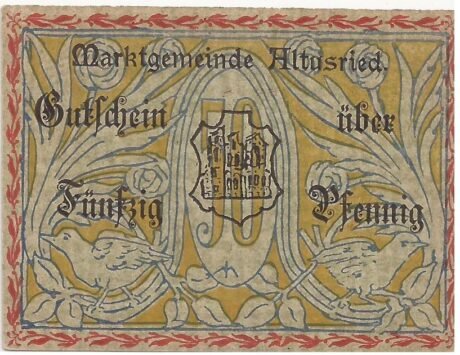 Marktgemeinde Altusried.
Gutschein über
50
Fünfzig Pfennig